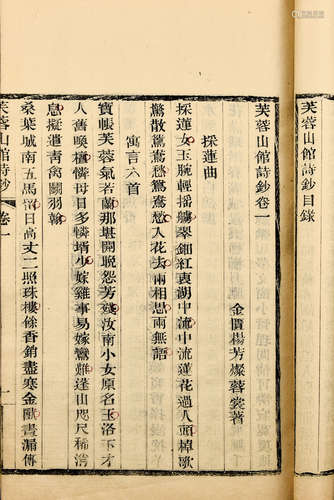 芙蓉山館詩鈔目錄
芙蓉山館詩鈔卷一
金匱楊芳燦蓉裳著
採蓮曲
採蓮女玉腕輕搖艣翠鈿紅衷湖中流蓮花過人頭棹歌
驚散鴛鴦愁鴛鴦愁入花去兩相思兩無語
寓言六首
寶帳芙蓉氣若蘭那堪開睨怨芳殘汝南小女原名玉洛下才
人舊喚檀憐母目多憐婿小嫁雞事易嫁鸞難蓬山咫尺稀消
息擬遣青禽關羽翰
桑葉城南五馬留日高丈二照珠樓餘香銷盡寒金獸晝漏傳
芙蓉山館詩鈔 卷一
一